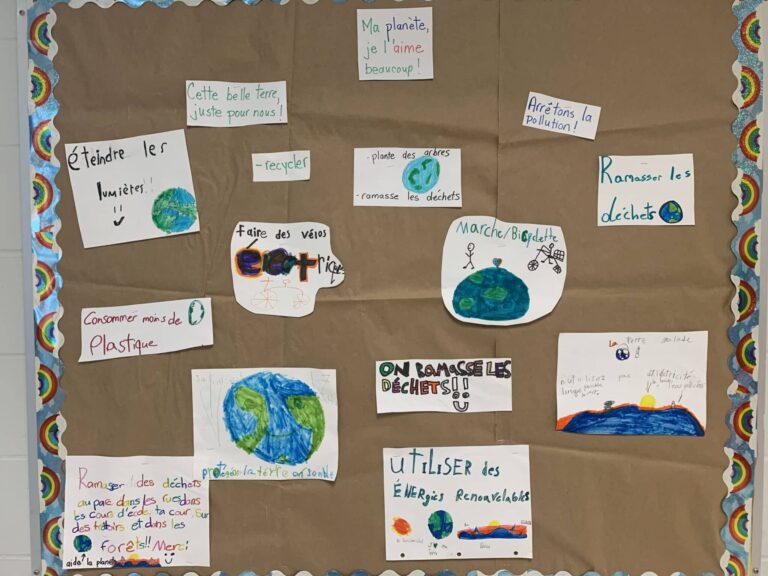 Ma planète,
je l'aime
beaucoup!
Cette belle terre,
juste pour nous!
Arrêtons la
pollution!
éteindre les
lumières!!
-recycler
- plante des arbres
- ramasse les déchets
Ramasser les
déchets
faire des vélos
Éléctrique
Marche/Bicyclette
Consommer moins de
Plastique
ON RAMASSE LES
DÉCHETS!!
La terre malade
n'utilisez pas
protégion la terre
Ramasser des déchets
au parc dans les rues dans
les cours d'école, ta cour, sur
des trotoirs et dans les
forêts!! Merci
aide la planet
UTILISER des
ÉNERgies Renouvelables